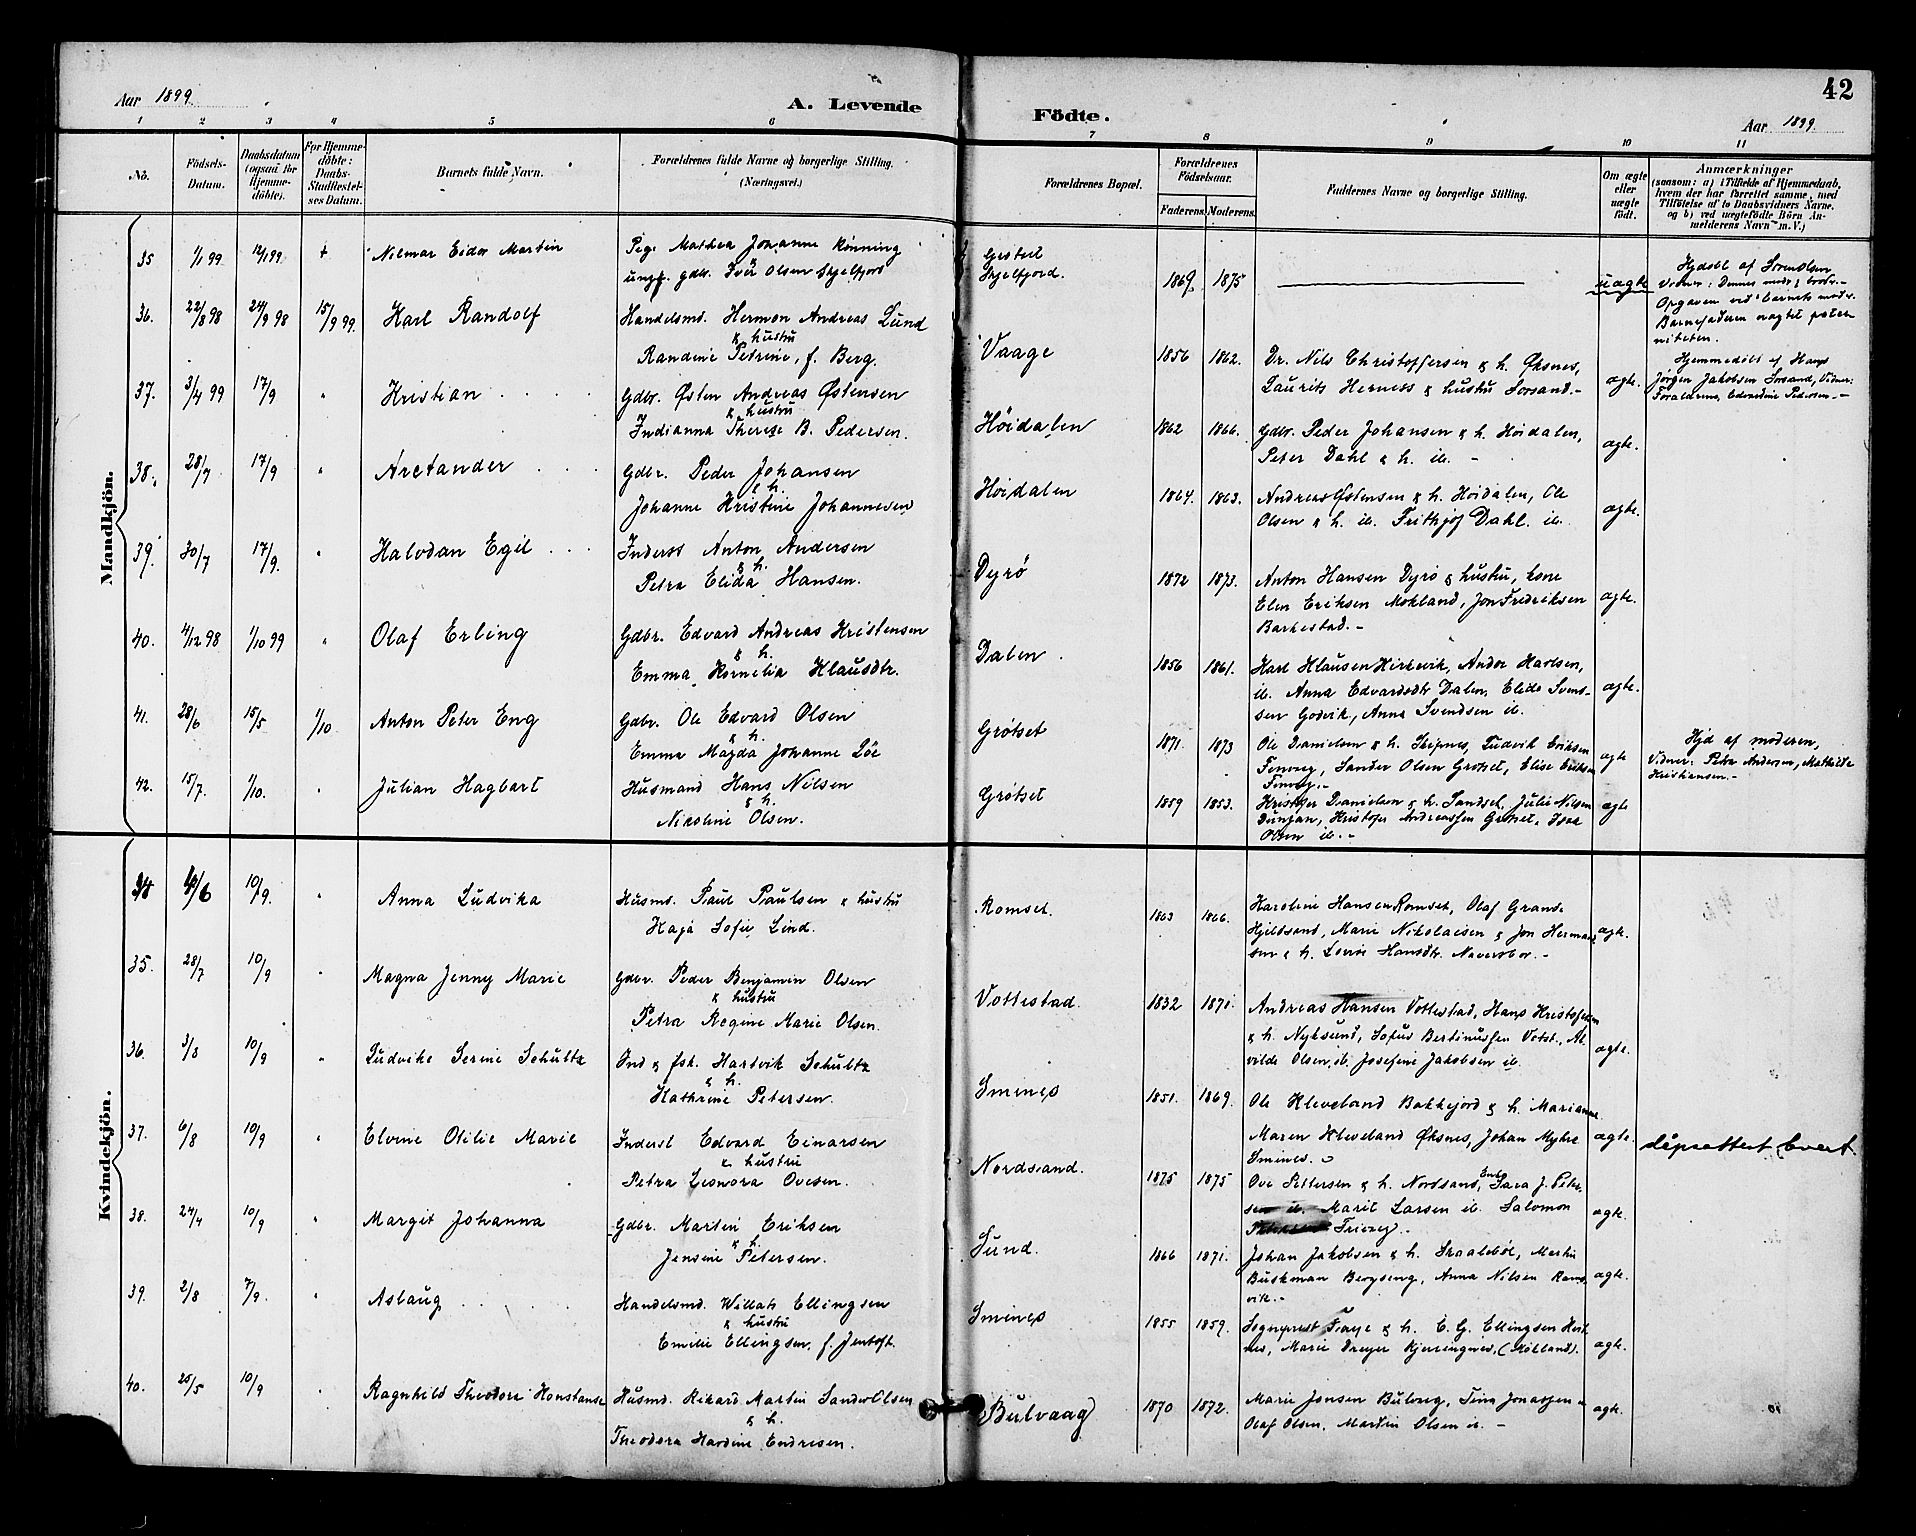 42
Aar 1899.
A. Levende
Födte.
Aar 1899.
1 2 3 4 5 6 7 8 9 10 11
No.
Födsels-
Datum.
Daabsdatum
(ogsaa för
Hjemme-
döbte).
For Hjemme-
döbte:
Daabs-
Stadfæstel-
ses Datum.
Barnets fulde Navn.
Forældrenes fulde Navne og borgerlige Stilling.
(Næringsvei.)
Forældrenes Bopæl.
Forældrenes
Födselsaar.
Faderens. Moderens.
Faddernes Navne og borgerlige Stilling.
Om ægte
eller
uægte
födt.
Anmærkninger
(saasom: a) i Tilfælde af Hjemmedaab,
hvem der har forrettet samme, med
Tilföielse af to Daabsvidners Navne,
og b) ved uægtefödte Börn An-
melderens Navn m. V.)
Mandkjön.
35 1/1 99 12/1 99 + Nilmar Eidor Martin
Pige Mathea Johanne Rönning
ungk. gdbr. Iver Olsen Skjelfjord
Gisted
Skjelfjord.
1869 1875
uægte
Hjdöbt af
36. 22/8 98 24/9 98 15/9 99. Karl Randolf
Handelsmd. Hermon Andreas Lund
& hustru
Randine Petrine, f. Berg.
Vaage 1856 1862.
Dr. Nils Christoffersen & h. Øksnes,
Laurits Herness & hustru Sorsand.-
ægte.
Hjemmedöbt af Hans
Jørgen Jakobsen Sorsand, Vidner:
37. 3/4 99 17/9 " Kristian
Gdbr. Østen Andreas Østensen
& hustru
Indianna Therese B. Pedersen.
Höidalen 1862 1866.
Gdbr. Peder Johansen & h. Höidalen,
Peter Dahl & h. ib. -
ægte.
38. 28/7 17/9 " Arctander
Gdbr. Peder Johansen
& h.
Johanne Kristine Johannesen
Höidalen 1864. 1863.
Andreas Østensen & h. Höidalen, Ole
Olsen & h. ib. Frithjof Dahl. ib.
ægte.
39. 30/7 17/9. " Halvdan Egil
Inderst Anton Andersen
& h.
Petra Elida Hansen.
Dyrö 1872 1873.
Anton Hansen Dyrö & hustru, kone
Elen Eriksen Mokland, Jon Fredriksen
Barkestad.-
ægte.
40. 4/12 98 1/10 99 " Olaf Erling
Gdbr. Edvard Andreas Kristensen
& h.
Emma Kornelia Klausdtr.
Dalen. 1856 1861.
Karl Klausen Kirkvik, Andor Karlsen,
ib. Anna Edvardsdtr Dalen, Elide Svens-
sen Godvik, Anna Svendsen ib.
ægte.
41. 28/6 15/5 1/10 Anton Peter Eng
Gdbr. Ole Edvard Olsen
& h.
Emma Magda Johanne
Grötset 1871. 1873
Ole Danielsen & h. Skipnes, Ludvik Eriksen
Finvaag, Sander Olsen Grötset, Elise Eriksen
Finvåg.-
ægte
Hjd af moderen,
Vidner: Petra Andersen, Mathilde
Kristiansen.-
42. 15/7. 1/10. " Julian Hagbart
Husmand Hans Nilsen
& h.
Nikoline Olsen.
Grötset 1859 1853.
Kristofer Danielsen & h. Sandset, Julie Nilsen
Kristofer Andreassen Grötset,
Olsen ib.-
ægte
Kvindekjön.
34 /6 10/9. " Anna Ludvika
Husmd. Paul Paulsen & hustru
Kaja Sofie Lind.
Romset. 1863 1866.
Karoline Hansen Romset, Olaf
Marie Nikolaisen & Jon Herman-
sen & h. Lovise Hansdtr.
ægte.
35. 28/7 10/9 " Magna Jenny Marie
Gdbr. Peder Benjamin Olsen
& hustru
Petra Regine Marie Olsen.
Vottestad. 1832 1871.
Andreas Hansen Vottestad, Hans Kristofersen
& h. Nyksund, Sofus Bertinussen Votst., Al-
vilde Olsen, ib. Josefine Jakobsen ib.
ægte.
36. 3/8 10/9 " Ludvike Serine Schultz
Ind & fsk. Hartvik Schultz
& h.
Kathrine Petersen.
Smines 1851. 1869.
Ole Kleveland Bakkejord & h. Marianne
Maren Kleveland Øksnes, Johan Myhre
Smines.-
ægte.
37. 6/8 10/9 " Elvine Otilie Marie
Inderst Edvard Einarsen
& hustru
Petra Leonora Ovesen.
Nordsand. 1875 1875
Ove Pettersen & h. Nordsand, Sara J. Peter-
sen ib. Marit Larsen ib. Salomon
ægte.
38. 24/4 10/9 " Margit Johanna
Gdbr. Martin Eriksen
& h.
Jensine Petersen.
Sund. 1866 1871.
Johan Jakobsen & h. Skaaleböl, Martin
Buskman Bergseng, Anna Nilsen Rams-
vik.-
ægte.
39. 2/8 7/9. " Aslaug
Handelsmd. Willats Ellingsen
& hustru
Emilie Ellingsen, f. Jentoft.
Smines 1855 1859.
Sogneprest Fraye & h. E. G. Ellingsen
Marie Dreyer Kjerringnes,
ægte.
40. 25/5 10/9 " Ragnhild Theodora Konstanse
Husmd. Rikard Martin Sander Olsen
& h.
Theodora Hardine Endresen.
Bulvaag 1870 1872.
Marie Jensen Bulvåg, Tina Jonassen &
Olaf Olsen, Martin Olsen ib. -
ægte.